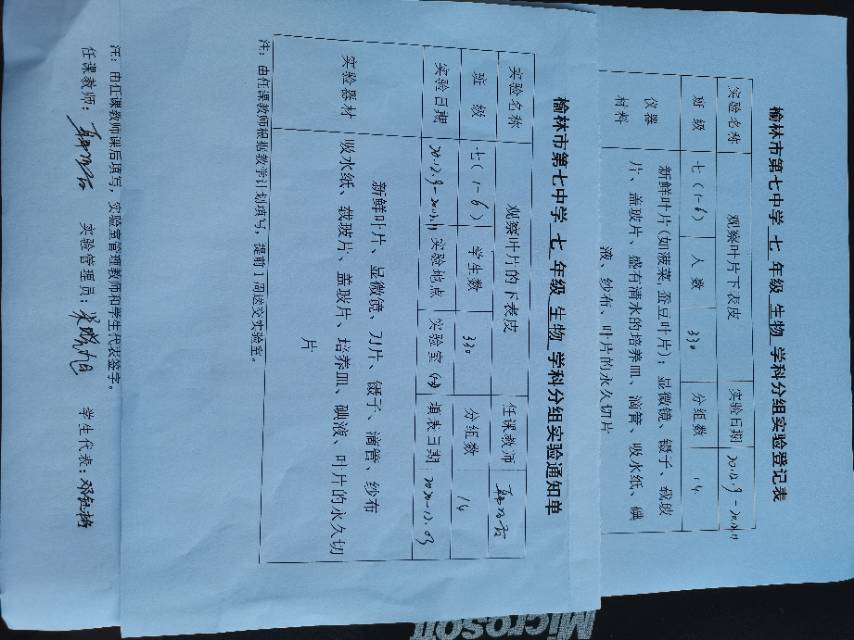 榆林市第七中学 七 年级 生物 学科分组实验登记表
实验名称 观察叶片下表皮 实验日期
班 级 七(1-6) 人 数 330 分组数 14
仪器 材料 新鲜叶片(如菠菜,蚕豆叶片);显微镜、镊子、载玻
片、盖玻片、盛有清水的培养皿、滴管、吸水纸、碘
液、纱布、叶片的永久切片
榆林市第七中学 七 年级 生物 学科分组实验通知单
实验名称 观察叶片的下表皮 任课教师
班 级 七(1-6) 学生数 330 分组数 14
实验日期 实验地点 实验室 填表日期 2020-12.03
实验器材 新鲜叶片、显微镜、刀片、镊子、滴管、纱布
吸水纸、载玻片、盖玻片、培养皿、碘液、叶片的永久切
片
注:由任课教师根据教学计划填写,提前1周送交实验室。
注:由任课教师课后填写,实验室管理教师和学生代表签字。
任课教师: 实验管理员: 学生代表:
Microsoft